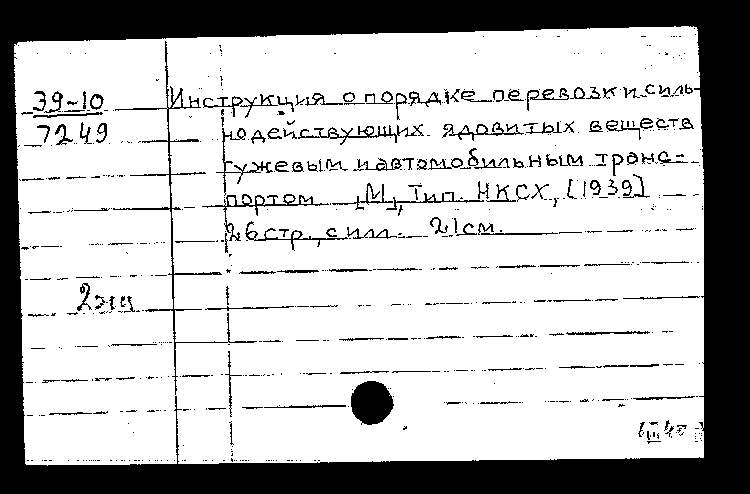 39-10
7249
Инструкция о порядке перевозки силь-
нодействующих ядовитых веществ
гужевым и автомобильным транс-
портом [М], Тип. НКСХ, [1939]
26 стр., с илл. 21 см.
2 экз
III 40